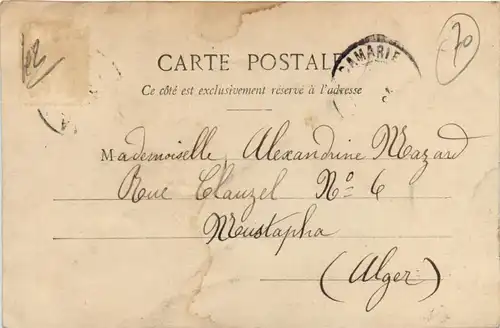 62
70
CARTE POSTALE
DAMARIE
Ce côté est exclusivement réservé à l'adresse
Mademoiselle Alexandrine Mazard
Rue Clauzel Nº 6
Mustapha
(Alger)